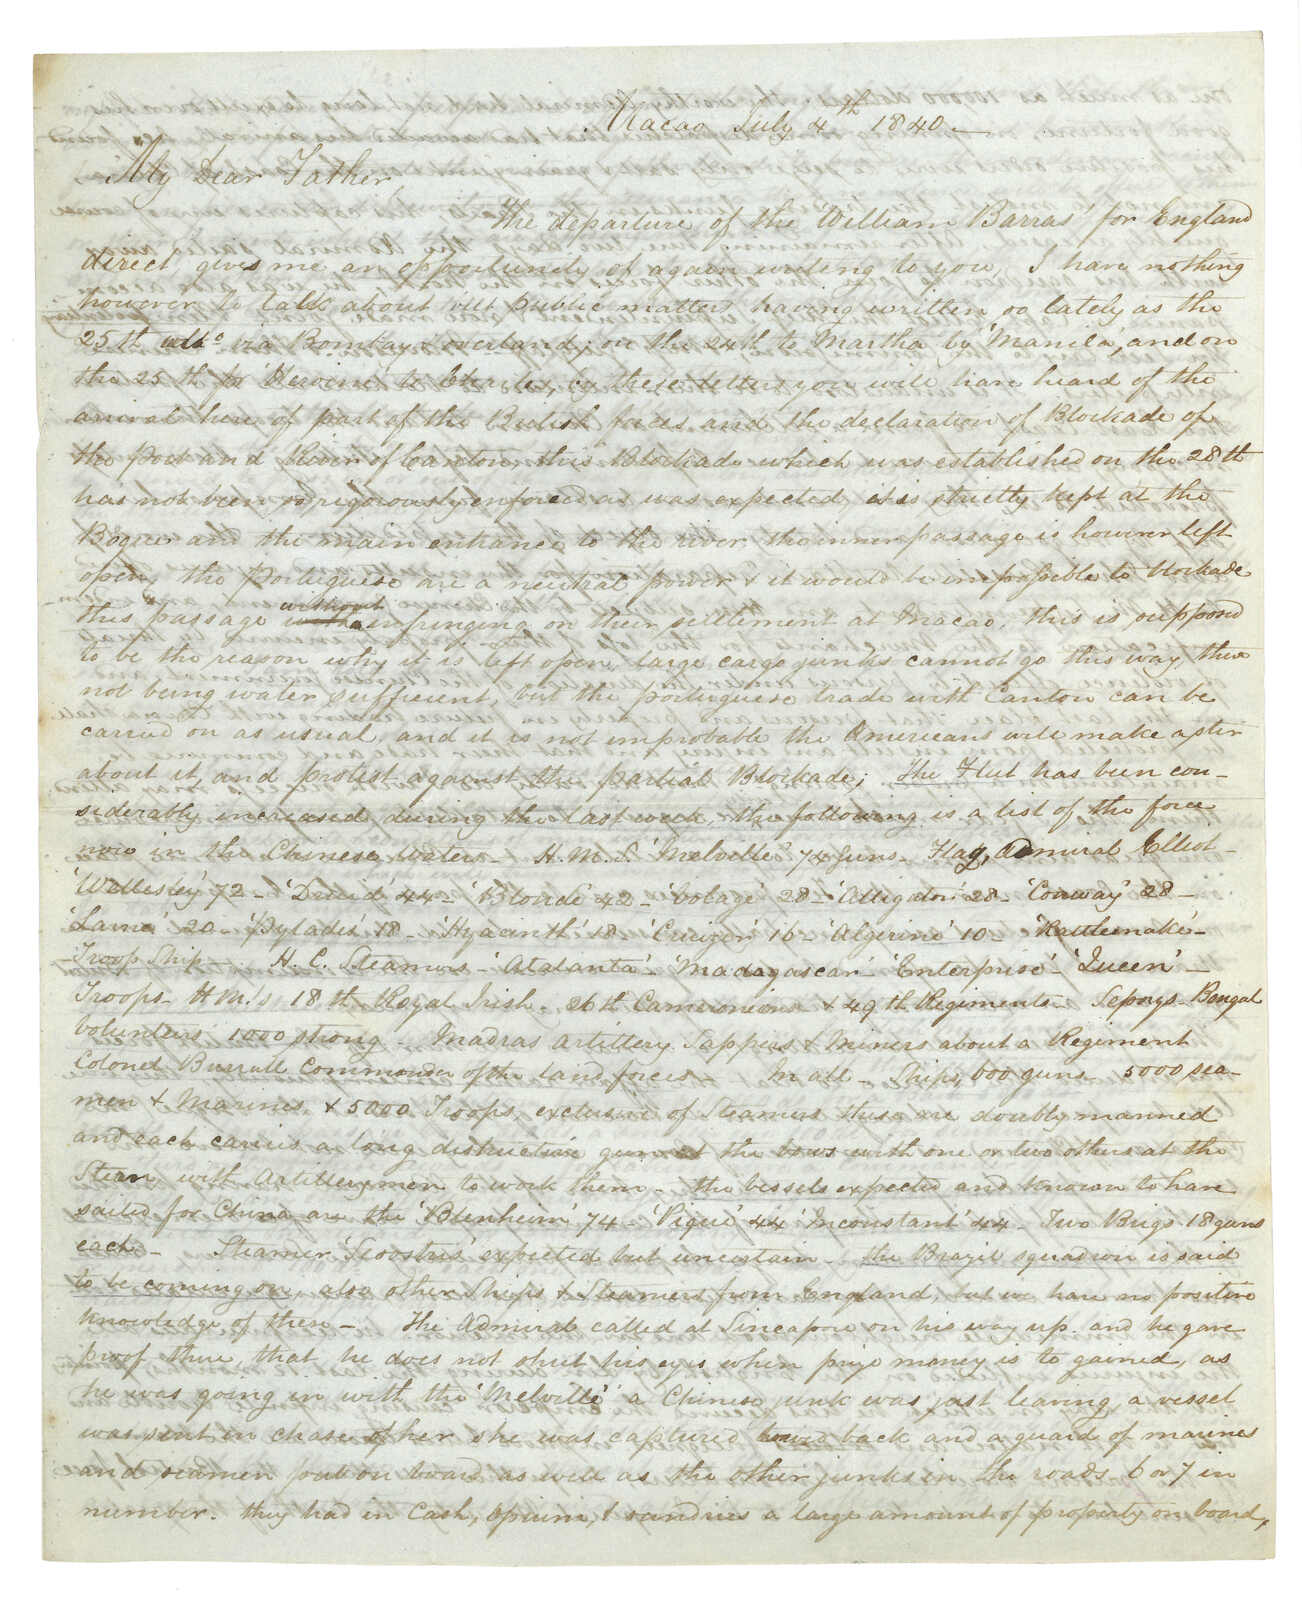 Macao July 4th 1840 —
My Dear Father,
The departure of the 'William Barras' for England
direct, gives me an opportunity of again writing to you, I have nothing
however to talk about but public matters having written so lately as the
25th ulto via Bombay & overland; on the 24th to Martha by 'Manila', and on
the 25th by 'Heroine' to by these letters you will have heard of the
arrival here of part of the British forces and the declaration of Blockade of
the Port and River of Canton, this Blockade which was established on the 28th
has not been so rigorously enforced as was expected, it is strictly kept at the
Bogue and the main entrance to the river, the inner passage is however left
open, the Portuguese are a neutral power & it would be impossible to blockade
this passage without infringing on their settlement at Macao, this is supposed
to be the reason why it is left open, large cargo junks cannot go this way, there
not being water sufficient, but the Portuguese trade with Canton can be
carried on as usual, and it is not improbable the Americans will make a stir
about it, and protest against the partial Blockade; The Fleet has been con-
siderably increased during the last week, the following is a list of the force
now in the Chinese Waters — H.M.S. 'Melville' 74 guns — Flag, Admiral Elliot —
'Wellesley' 72 — 'Druid' 44 — 'Blonde' 42 — 'Volage' 28 — 'Alligator' 28 — 'Conway' 28 —
'Larne' 20 — 'Pylades' 18 — 'Hyacinth' 18 — 'Cruizer' 16 — 'Algerine' 10 — 'Rattlesnake' —
— Troop Ship — H. C. Steamers — 'Atalanta' — 'Madagascar' 'Enterprise' — 'Queen' —
Troops — H.M.'s 18th Royal Irish — 26th Cameronions & 49th Regiments — Sepoys — Bengal
Volunteers 1000 strong — Madras Artillery Sappers & Miners about a Regiment
Colonel Burrell Commander of the land forces — In all — Ships, 600 guns — 5000 sea-
men & Marines, & 5000 Troops, exclusive of Steamers these are doubly manned
and each carries a long destructive gun at the bows with one or two others at the
Stern, with Artillerymen to work them — the vessels expected and known to have
sailed for China are the 'Blenheim' 74 — 'Pique' 44 'Inconstant' 44 — Two Brigs 18 guns
each — Steamer 'Sesostris' expected but uncertain — the Brazil squadron is said
to be coming on, also other Ships & Steamers from England, but we have no positive
knowledge of these — The Admiral called at Sincapore on his way up and he gave
proof there, that he does not shut his eyes when prize money is to gained, as
he was going in with the 'Melville' a Chinese junk was just leaving, a vessel
was sent in chase of her she was captured towed back and a guard of marines
and seamen put on board as well as the other junks in the roads 6 or 7 in
number. they had in Cash, opium, & sundries a large amount of property on board,